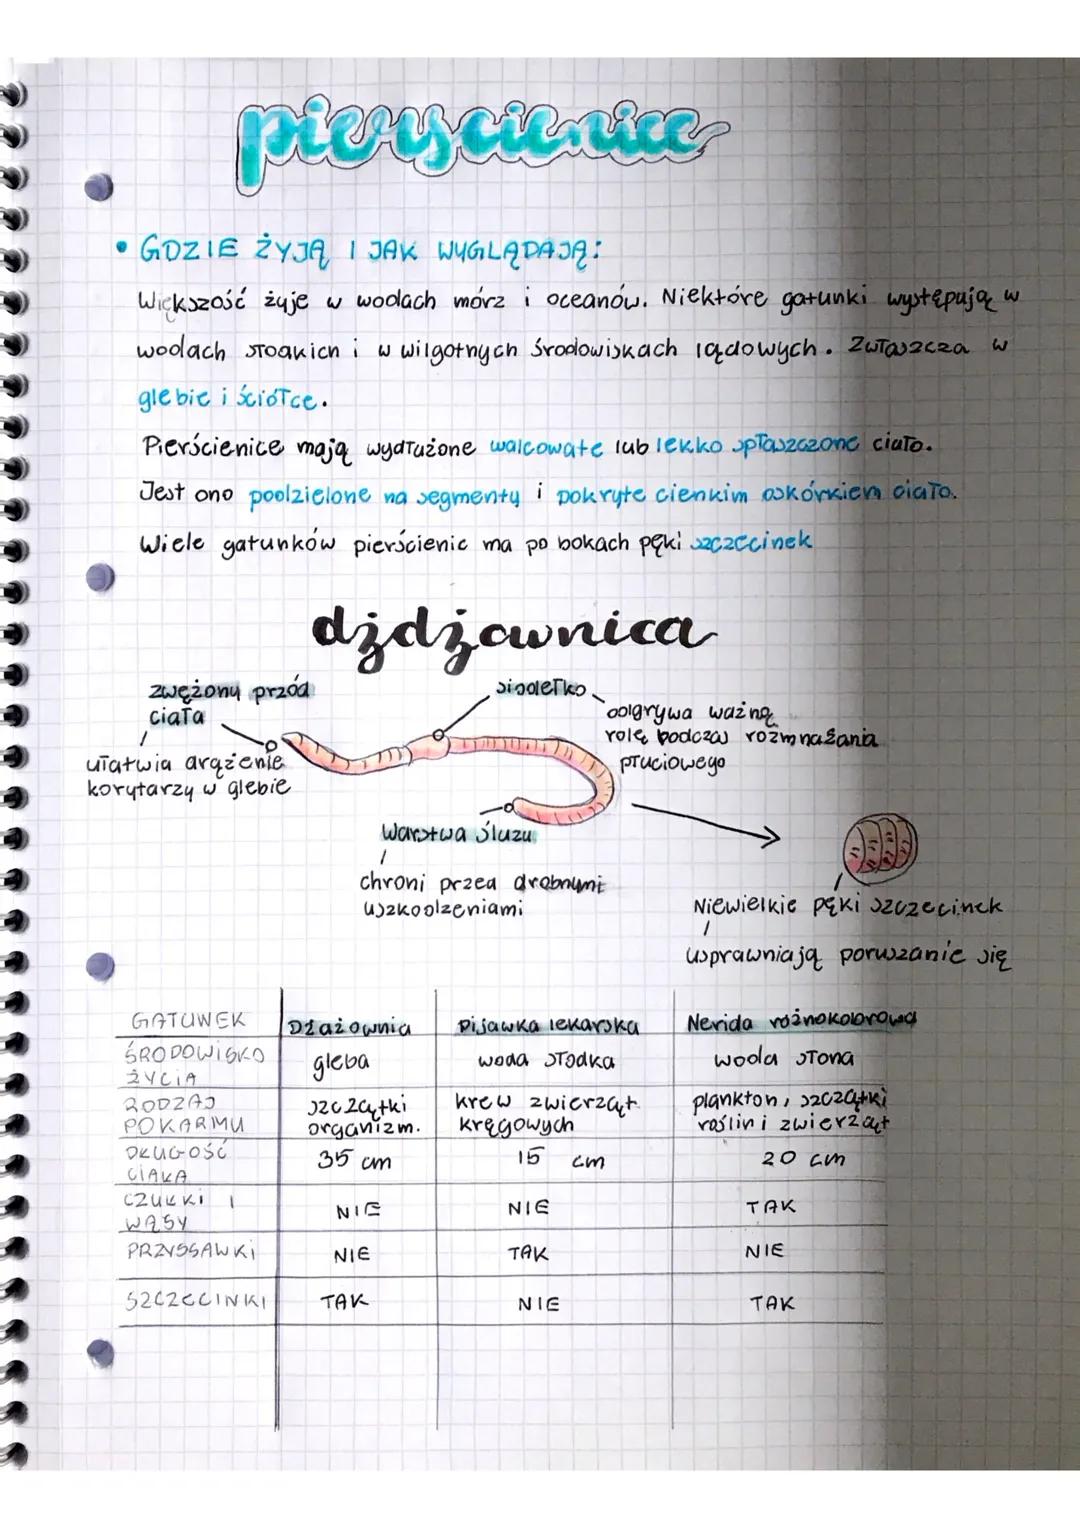 pierscienice
• GDZIE ŻYJĄ I JAK WYGLĄDAJĄ:
Większość żyje w wodach mórz i oceanów. Niektóre gatunki występują w
wodach słodkich i w wilgotnych środowiskach lądowych. Zwłaszcza w
glebie i ściółce.
Pierścienice mają wydłużone walcowate lub lekko spłaszczone ciało.
Jest ono podzielone na segmenty i pokryte cienkim oskórkiem ciało.
Wiele gatunków pierścienic ma po bokach pęki szczecinek
dżdżownica
zwężony przód
ciała
ułatwia drążenie
korytarzy w glebie
siodełko
odgrywa ważną
rolę podczas rozmnażania
płuciowego
warstwa śluzu
chroni przed drobnymi
uszkodzeniami
Niewielkie pęki szczecinek
usprawniają poruszanie się
GATUNEK Dżdżownia Pijawka lekarska Nerida różnokolorowa
ŚRODOWISKO ŻYCIA gleba woda słodka woda słona
RODZAJ POKARMU szczątki organizm. krew zwierząt kręgowych plankton, szczątki roślin i zwierząt
DŁUGOŚĆ CIAŁA 35 cm 15 cm 20 cm
CZUŁKI I WĄSY NIE NIE TAK
PRZYSSAWKI NIE TAK NIE
SZCZECINKI TAK NIE TAK